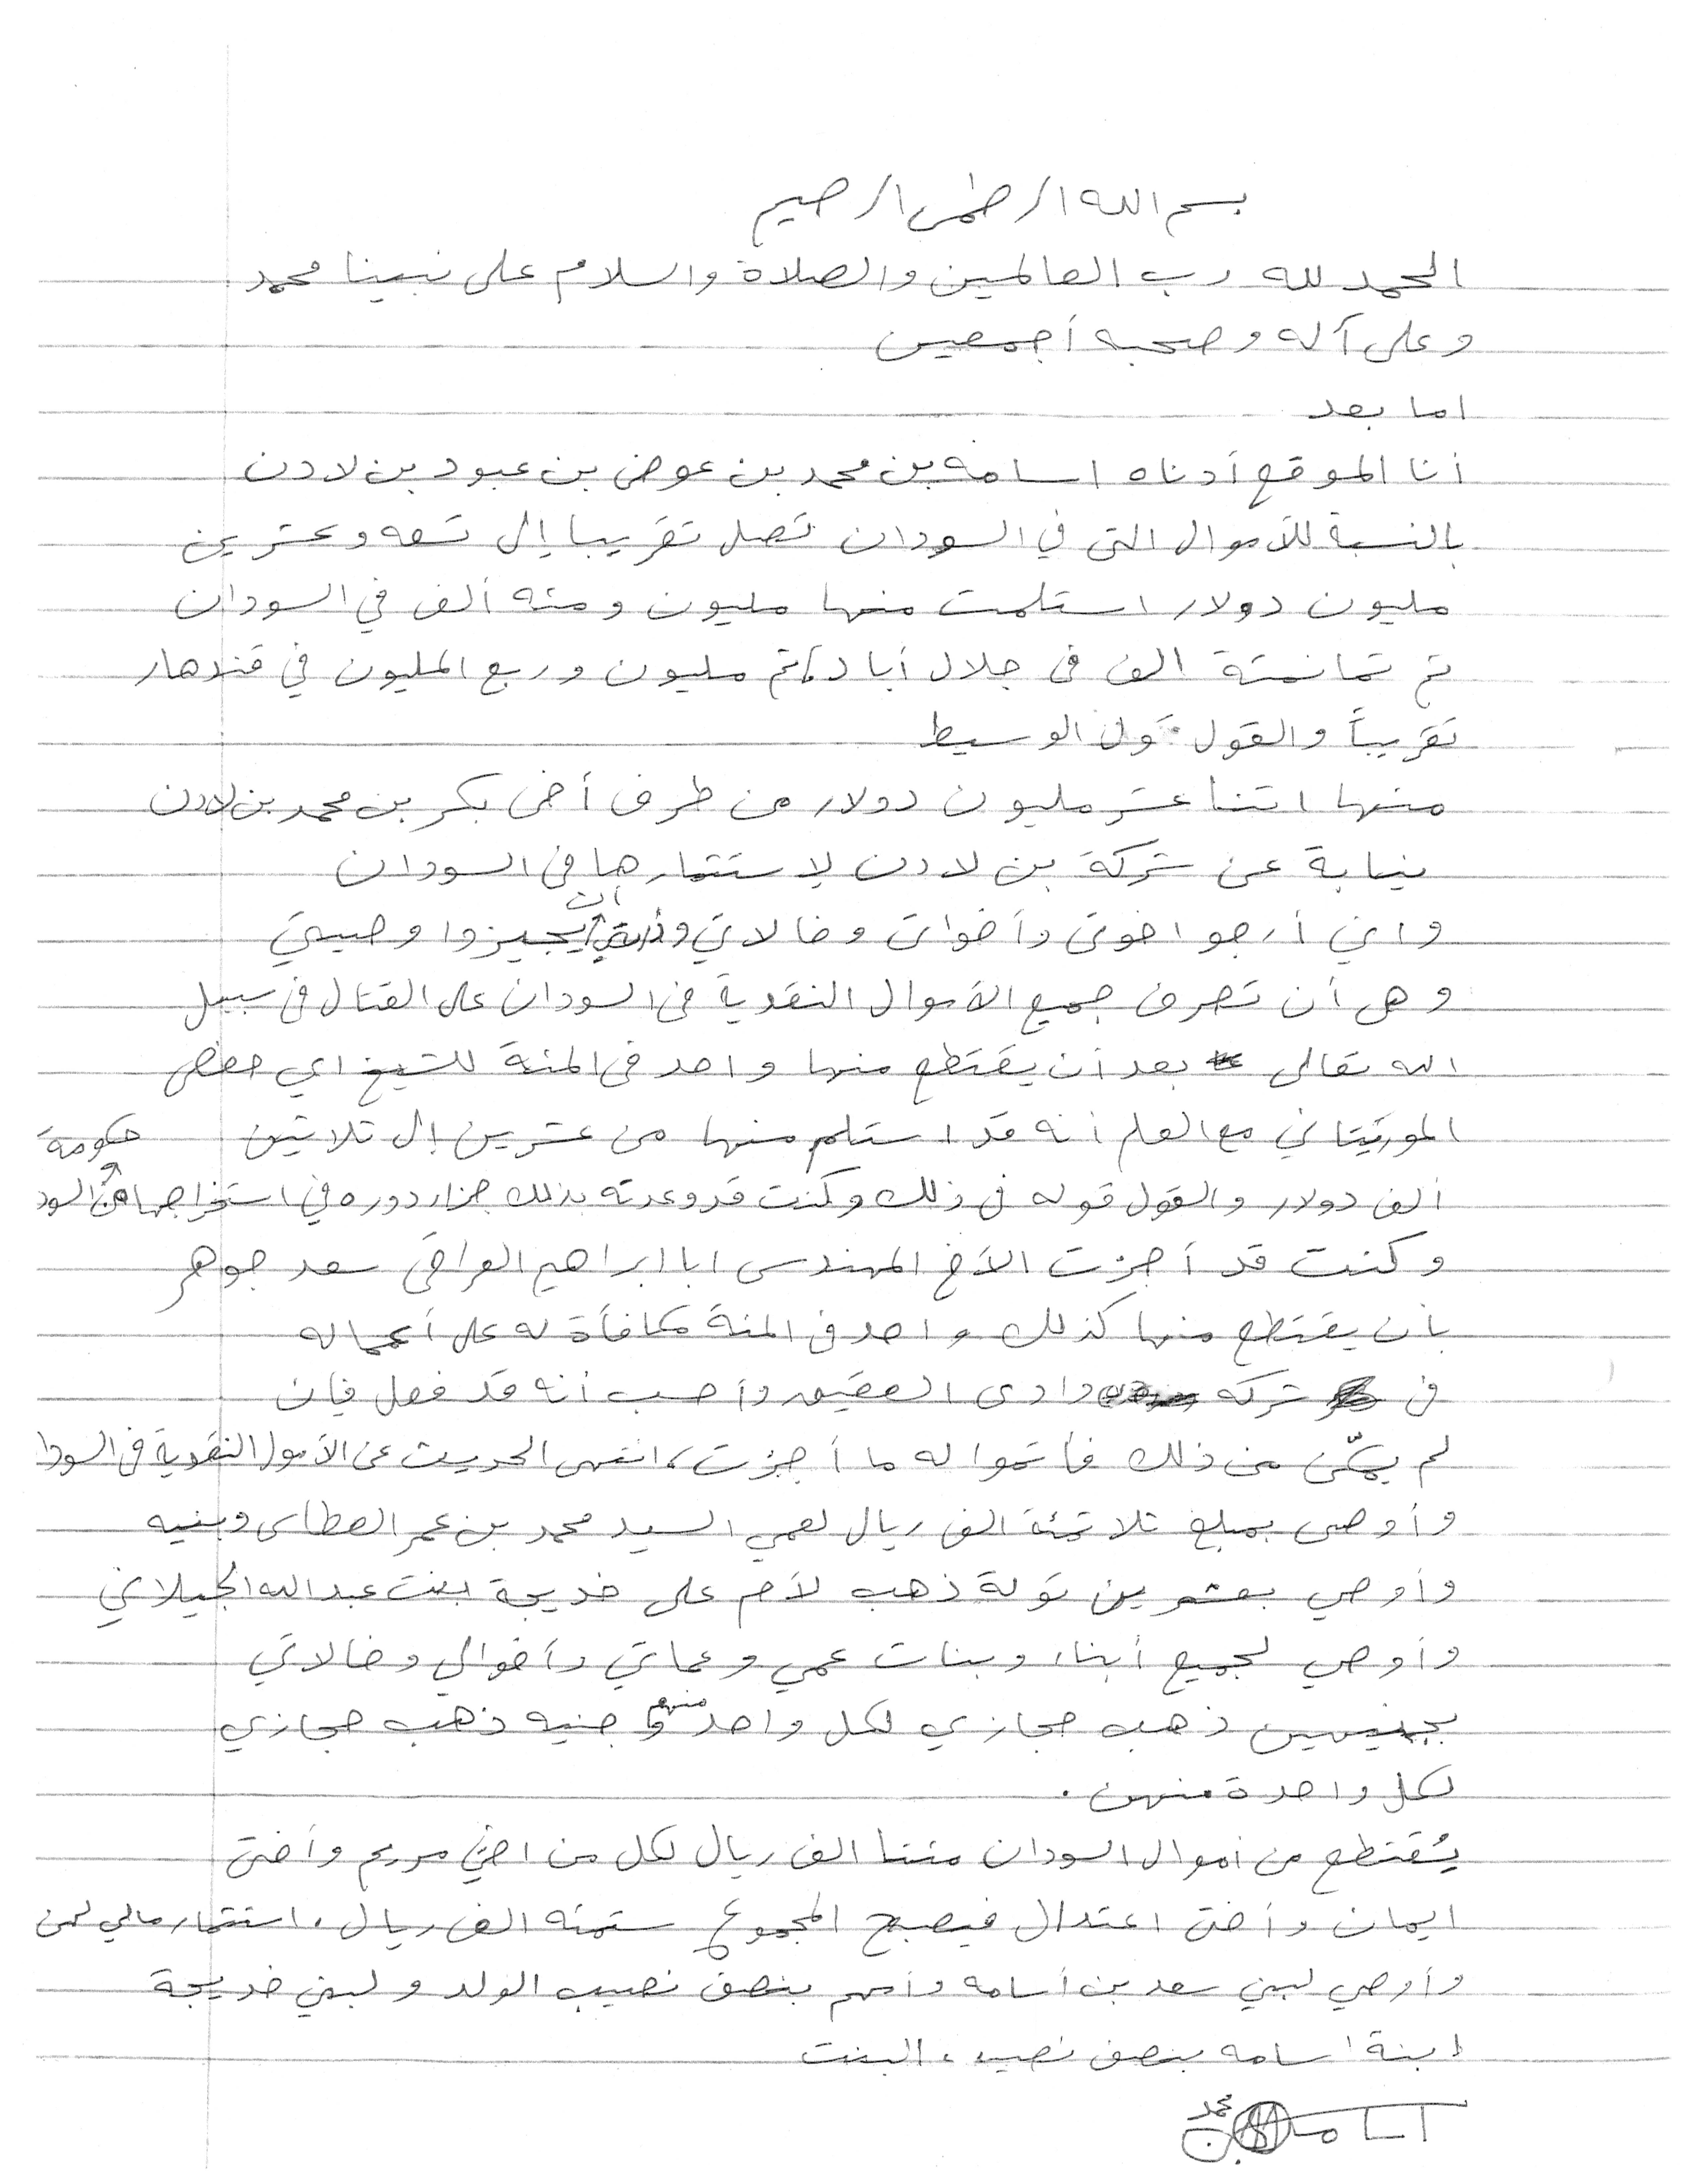 بسم الله الرحمن الرحيم
الحمد لله رب العالمين والصلاة والسلام على نبينا محمد
وعلى آله وصحبه أجمعين
اما بعد
أنا الموقع أدناه اسامه بن محمد بن عوض بن عبود بن لادن
بالنسبة للأموال التي في السودان تصل تقريبا إلى تسعه وعشرين
مليون دولار استلمت منها مليون ومئه ألف في السودان
ثم ثمانمئة الف في جلال أباد، ثم مليون وربع المليون في قندهار
تقريباً والقول قول الوسيط
منها اثنا عشر مليون دولار من طرف أخي بكر بن محمد بن لادن
نيابة عن شركة بن لادن لاستثمارها في السودان
واني أرجو اخوتي وأخواتي وخالاتي أن يجيزوا وصيتي
وهي أن تصرف جميع الأموال النقدية في السودان على القتال في سبيل
الله تعالى بعد أن يقتطع منها واحد في المئة للشيخ ابي حفص
الموريتاني مع العلم أنه قد استلم منها من عشرين إلى ثلاثين
ألف دولار والقول قوله في ذلك وكنت قد وعدته بذلك جزاء دوره في استخراجها من حكومة السود
وكنت قد أجزت الأخ المهندس ابا ابراهيم العراقي سعد جوهر
بأن يقتطع منها كذلك واحد في المئة مكافأة له على أعماله
في شركه وادي العقيق وأحسب أنه قد فعل فإن
لم يتمكّن من ذلك فأتموا له ما أجزت، انتهى الحديث عن الأموال النقدية في السودا
وأوصي بمبلغ ثلاثمئة الف ريال لعمي السيد محمد بن عمر العطاس وبنيه
وأوصي بعشرين تولة ذهب لأم علي خديجة بنت عبدالله الجيلاني
وأوصي لجميع أبناء وبنات عمي وعماتي وأخوالي وخالاتي
بجنيهين ذهب حجازي لكل واحد منهم و جنيه ذهب حجازي
لكل واحدة منهن .
يُقتطع من أموال السودان مئتا الف ريال لكل من اختي مريم وأختي
ايمان وأختي اعتدال فيصبح المجموع ستمئه الف ريال، استثمار مالي لهن
وأوصي لبني سعد بن أسامه وأمهم بنصف نصيب الولد ولبني خديجة
ابنة اسامه بنصف نصيب البنت
أسامه بن محمد